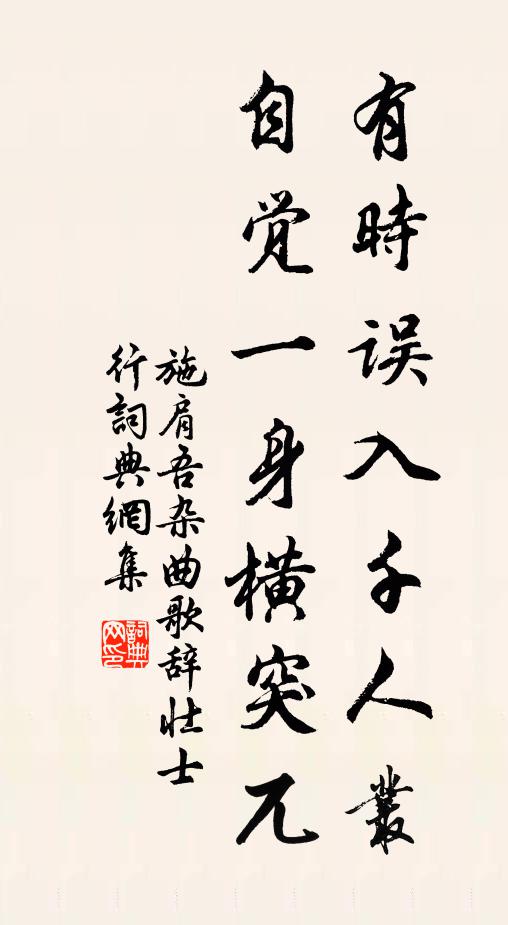 有時误入千人叢
自觉一身横突兀
施肩吾杂曲歌辞壮士
行詞典網集
詞典网印